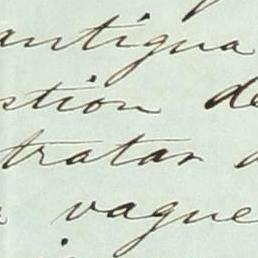 antigua
stion de
tratar
vague